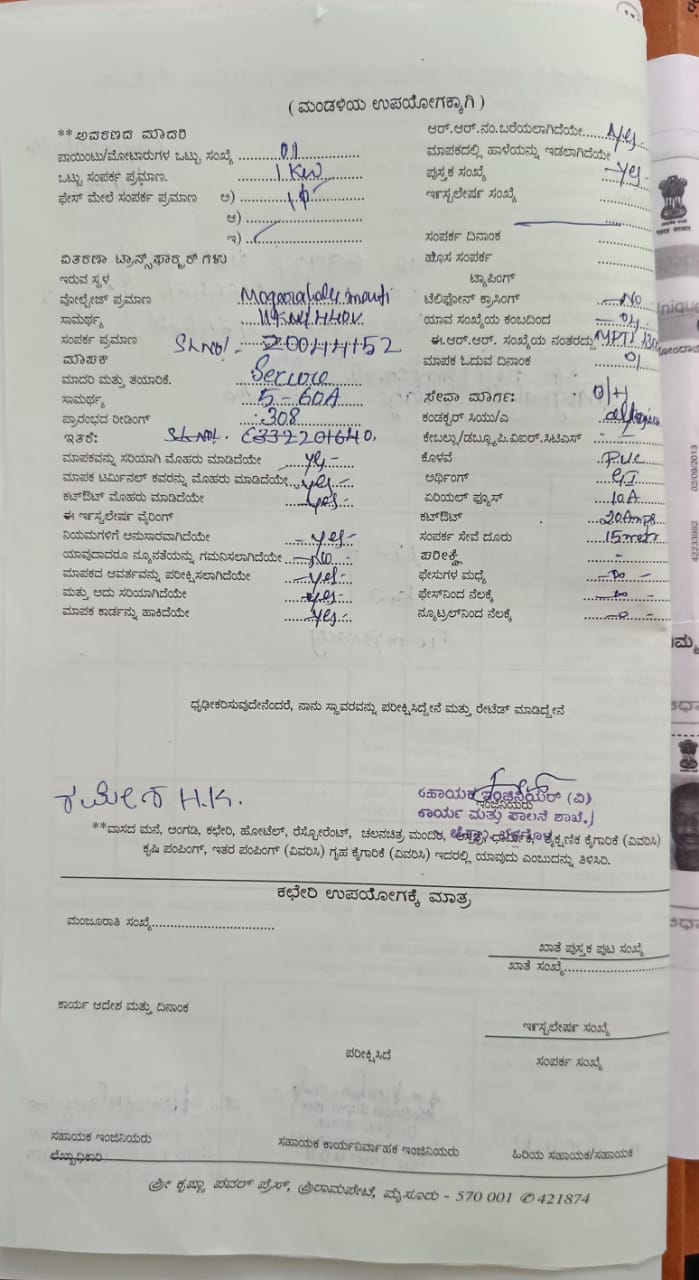 ( ಮಂಡಳಿಯ ಉಪಯೋಗಕ್ಕಾಗಿ )
**ಆವರಣದ ಮಾದರಿ
ಪಾಯಿಂಟು/ಮೋಟಾರುಗಳ ಒಟ್ಟು ಸಂಖ್ಯೆ 01
ಒಟ್ಟು ಸಂಪರ್ಕ ಪ್ರಮಾಣ. 1 KW
ಫೇಸ್ ಮೇಲೆ ಸಂಪರ್ಕ ಪ್ರಮಾಣ ಅ) 1ϕ
ಆ)
ಇ)
ವಿತರಣಾ ಟ್ರಾನ್ಸ್‌ಫಾರ್ಮರ್ ಗಳು
ಇರುವ ಸ್ಥಳ
ವೋಲ್ಟೇಜ್ ಪ್ರಮಾಣ
ಸಾಮರ್ಥ್ಯ
ಸಂಪರ್ಕ ಪ್ರಮಾಣ SL NO!- 20044152
ಮಾಪಕ
ಮಾದರಿ ಮತ್ತು ತಯಾರಿಕೆ. Secure
ಸಾಮರ್ಥ್ಯ 5-60A
ಪ್ರಾರಂಭದ ರೀಡಿಂಗ್ :308
ಇತರೆ: SL NO!. E332201640.
ಮಾಪಕವನ್ನು ಸರಿಯಾಗಿ ಮೊಹರು ಮಾಡಿದೆಯೇ yes -
ಮಾಪಕ ಟರ್ಮಿನಲ್ ಕವರನ್ನು ಮೊಹರು ಮಾಡಿದೆಯೇ yes -
ಕಟ್‌ಔಟ್ ಮೊಹರು ಮಾಡಿದೆಯೇ yes -
ಈ ಇನ್ಸ್ಟಲೇಷನ್ ವೈರಿಂಗ್
ನಿಯಮಗಳಿಗೆ ಅನುಸಾರವಾಗಿದೆಯೇ - yes -
ಯಾವುದಾದರೂ ನ್ಯೂನತೆಯನ್ನು ಗಮನಿಸಲಾಗಿದೆಯೇ - No
ಮಾಪಕದ ಆವರ್ತವನ್ನು ಪರೀಕ್ಷಿಸಲಾಗಿದೆಯೇ - yes -
ಮತ್ತು ಅದು ಸರಿಯಾಗಿದೆಯೇ yes -
ಮಾಪಕ ಕಾರ್ಡನ್ನು ಹಾಕಿದೆಯೇ - yes -
ಆರ್.ಆರ್.ನಂ.ಬರೆಯಲಾಗಿದೆಯೇ yes
ಮಾಪಕದಲ್ಲಿ ಹಾಳೆಯನ್ನು ಇಡಲಾಗಿದೆಯೇ
ಪುಸ್ತಕ ಸಂಖ್ಯೆ - yes
ಇನ್ಸ್ಟಲೇಷನ್ ಸಂಖ್ಯೆ
ಸಂಪರ್ಕ ದಿನಾಂಕ
ಹೊಸ ಸಂಪರ್ಕ
ಟ್ಯಾಪಿಂಗ್
ಟೆಲಿಫೋನ್ ಕ್ರಾಸಿಂಗ್ - No
ಯಾವ ಸಂಖ್ಯೆಯ ಕಂಬದಿಂದ
ಈ.ಆರ್.ಆರ್. ಸಂಖ್ಯೆಯ ನಂತರದ್ದು
ಮಾಪಕ ಓದುವ ದಿನಾಂಕ
ಸೇವಾ ಮಾರ್ಗ: O/H
ಕಂಡಕ್ಟರ್ ಸಿಯು/ಎ
ಕೇಬಲ್ಲು/ಡಬ್ಲ್ಯೂ.ಪಿ.ವಿಐಆರ್.ಸಿಟಿಎಸ್
ಕೊಳವೆ P.V.C
ಅರ್ಥಿಂಗ್ G.I
ಏರಿಯಲ್ ಫ್ಯೂಸ್ 10A
ಕಟ್‌ಔಟ್ 20Amps
ಸಂಪರ್ಕ ಸೇವೆ ದೂರು 15 meter
ಪರೀಕ್ಷೆ -
ಫೇಸುಗಳ ಮಧ್ಯೆ
ಫೇಸ್‌ನಿಂದ ನೆಲಕ್ಕೆ
ನ್ಯೂಟ್ರಲ್‌ನಿಂದ ನೆಲಕ್ಕೆ
ಧೃಢೀಕರಿಸುವುದೇನೆಂದರೆ, ನಾನು ಸ್ಥಾವರವನ್ನು ಪರೀಕ್ಷಿಸಿದ್ದೇನೆ ಮತ್ತು ರೇಟೆಡ್ ಮಾಡಿದ್ದೇನೆ
ರಮೇಶ H.K.
ಸಹಾಯಕ ಇಂಜಿನಿಯರ್ (ವಿ)
ಇಂಜಿನಿಯರು
ಕಾರ್ಯ ಮತ್ತು ಪಾಲನೆ ಶಾಖೆ.
**ವಾಸದ ಮನೆ, ಅಂಗಡಿ, ಕಛೇರಿ, ಹೋಟೆಲ್, ರೆಸ್ಟೋರೆಂಟ್, ಚಲನಚಿತ್ರ ಮಂದಿರ, ಶೈಕ್ಷಣಿಕ ಕೈಗಾರಿಕೆ (ವಿವರಿಸಿ)
ಕೃಷಿ ಪಂಪಿಂಗ್, ಇತರ ಪಂಪಿಂಗ್ (ವಿವರಿಸಿ) ಗೃಹ ಕೈಗಾರಿಕೆ (ವಿವರಿಸಿ) ಇದರಲ್ಲಿ ಯಾವುದು ಎಂಬುದನ್ನು ತಿಳಿಸಿರಿ.
ಕಛೇರಿ ಉಪಯೋಗಕ್ಕೆ ಮಾತ್ರ
ಮಂಜೂರಾತಿ ಸಂಖ್ಯೆ
ಖಾತೆ ಪುಸ್ತಕ ಪುಟ ಸಂಖ್ಯೆ
ಖಾತೆ ಸಂಖ್ಯೆ
ಕಾರ್ಯ ಆದೇಶ ಮತ್ತು ದಿನಾಂಕ
ಇನ್ಸ್ಟಲೇಷನ್ ಸಂಖ್ಯೆ
ಪರೀಕ್ಷಿಸಿದೆ
ಸಂಪರ್ಕ ಸಂಖ್ಯೆ
ಸಹಾಯಕ ಇಂಜಿನಿಯರು
ಸಹಾಯಕ ಕಾರ್ಯನಿರ್ವಾಹಕ ಇಂಜಿನಿಯರು
ಹಿರಿಯ ಸಹಾಯಕ/ಸಹಾಯಕ
ಲೆಖ್ಖಾಧಿಕಾರಿ
ಶ್ರೀ ಕೃಷ್ಣಾ ಪವರ್ ಪ್ರೆಸ್, ಶ್ರೀರಾಮಪೇಟೆ, ಮೈಸೂರು - 570 001 ✆ 421874
02/09/2013